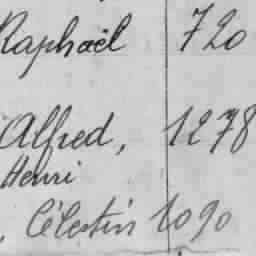 Raphaël 720
Alfred, 1278
Henri
, Célestin 1090